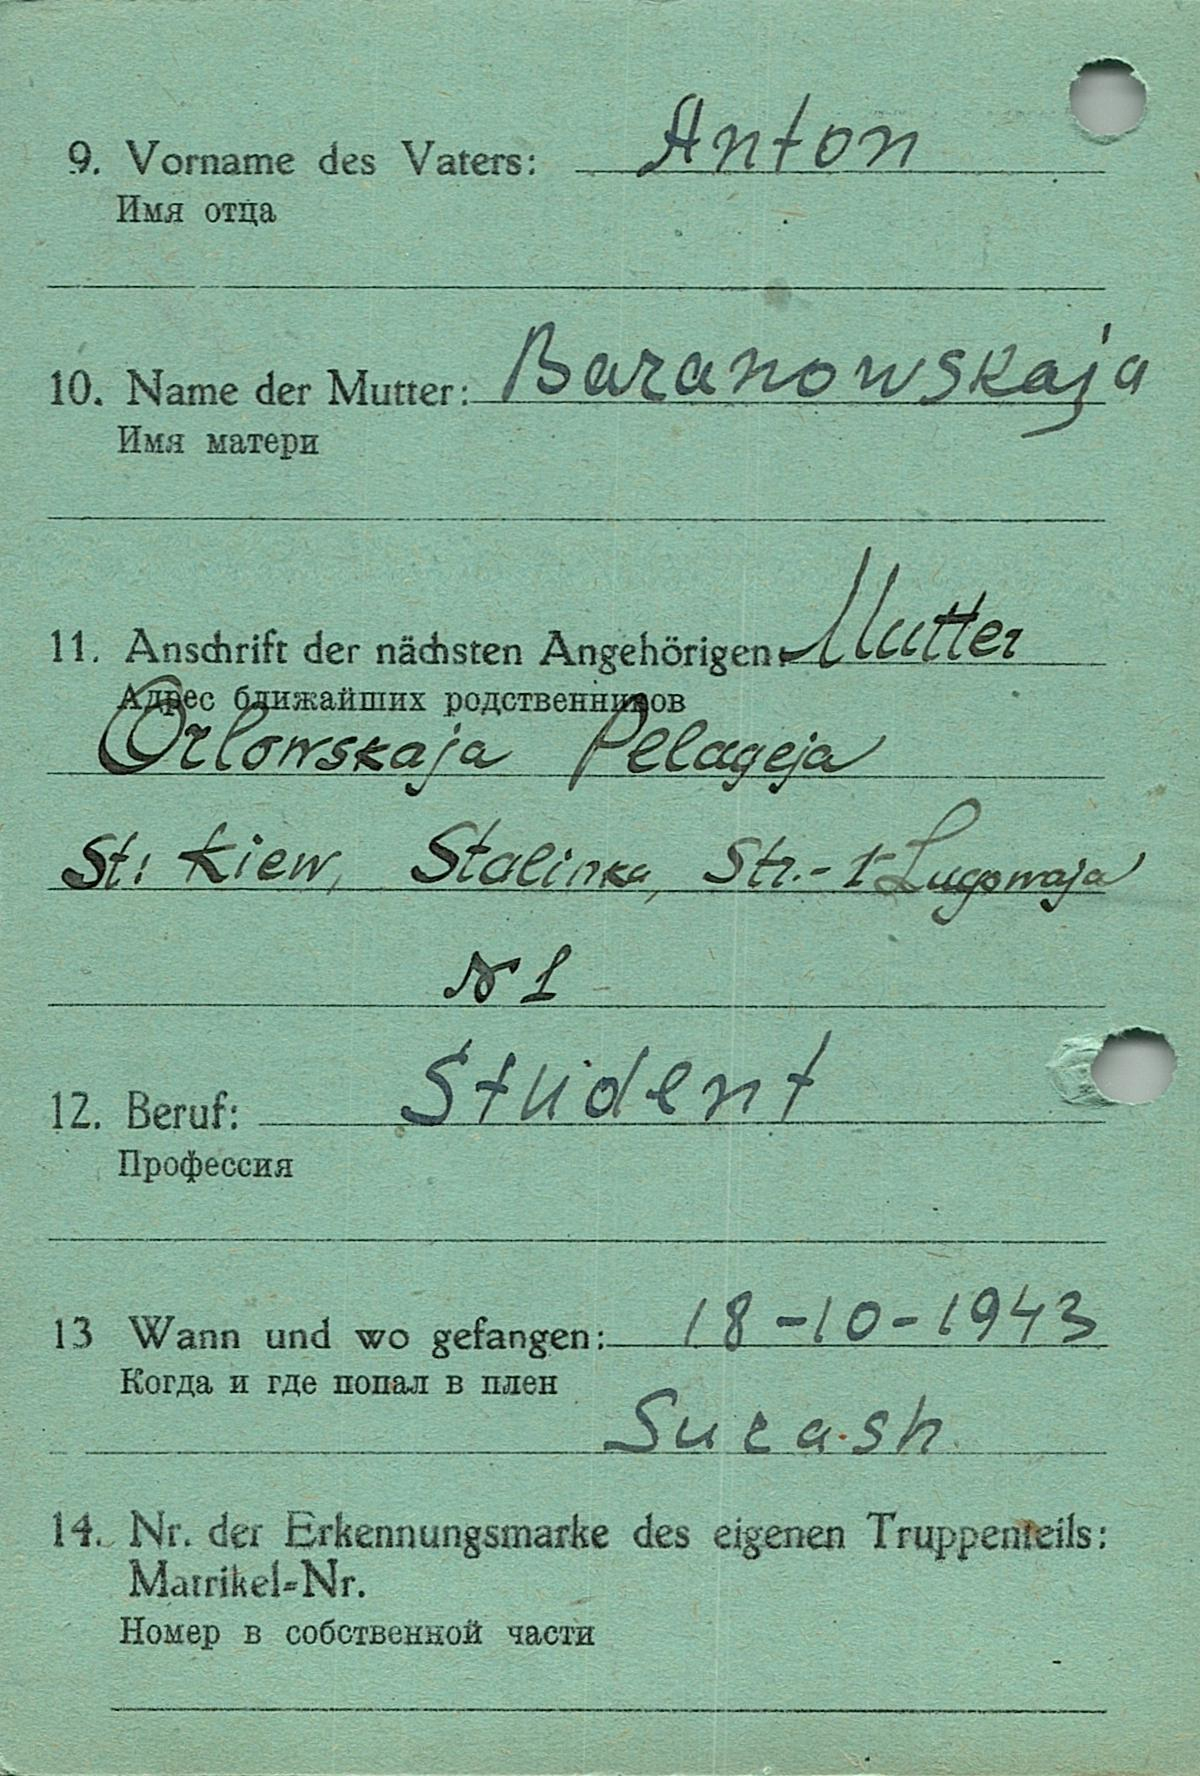 9. Vorname des Vaters: Anton
Имя отца
10. Name der Mutter: Baranowskaja
Имя матери
11. Anschrift der nächsten Angehörigen: Mutter
Адрес ближайших родственников
Orlowskaja Pelageja
St: Kiew, Stalinka, Str.- 1 Lugowaja
N 1
12. Beruf: Student
Профессия
13 Wann und wo gefangen: 18-10-1943
Когда и где попал в плен
Surash
14. Nr. der Erkennungsmarke des eigenen Truppenteils:
Matrikel-Nr.
Номер в собственной части